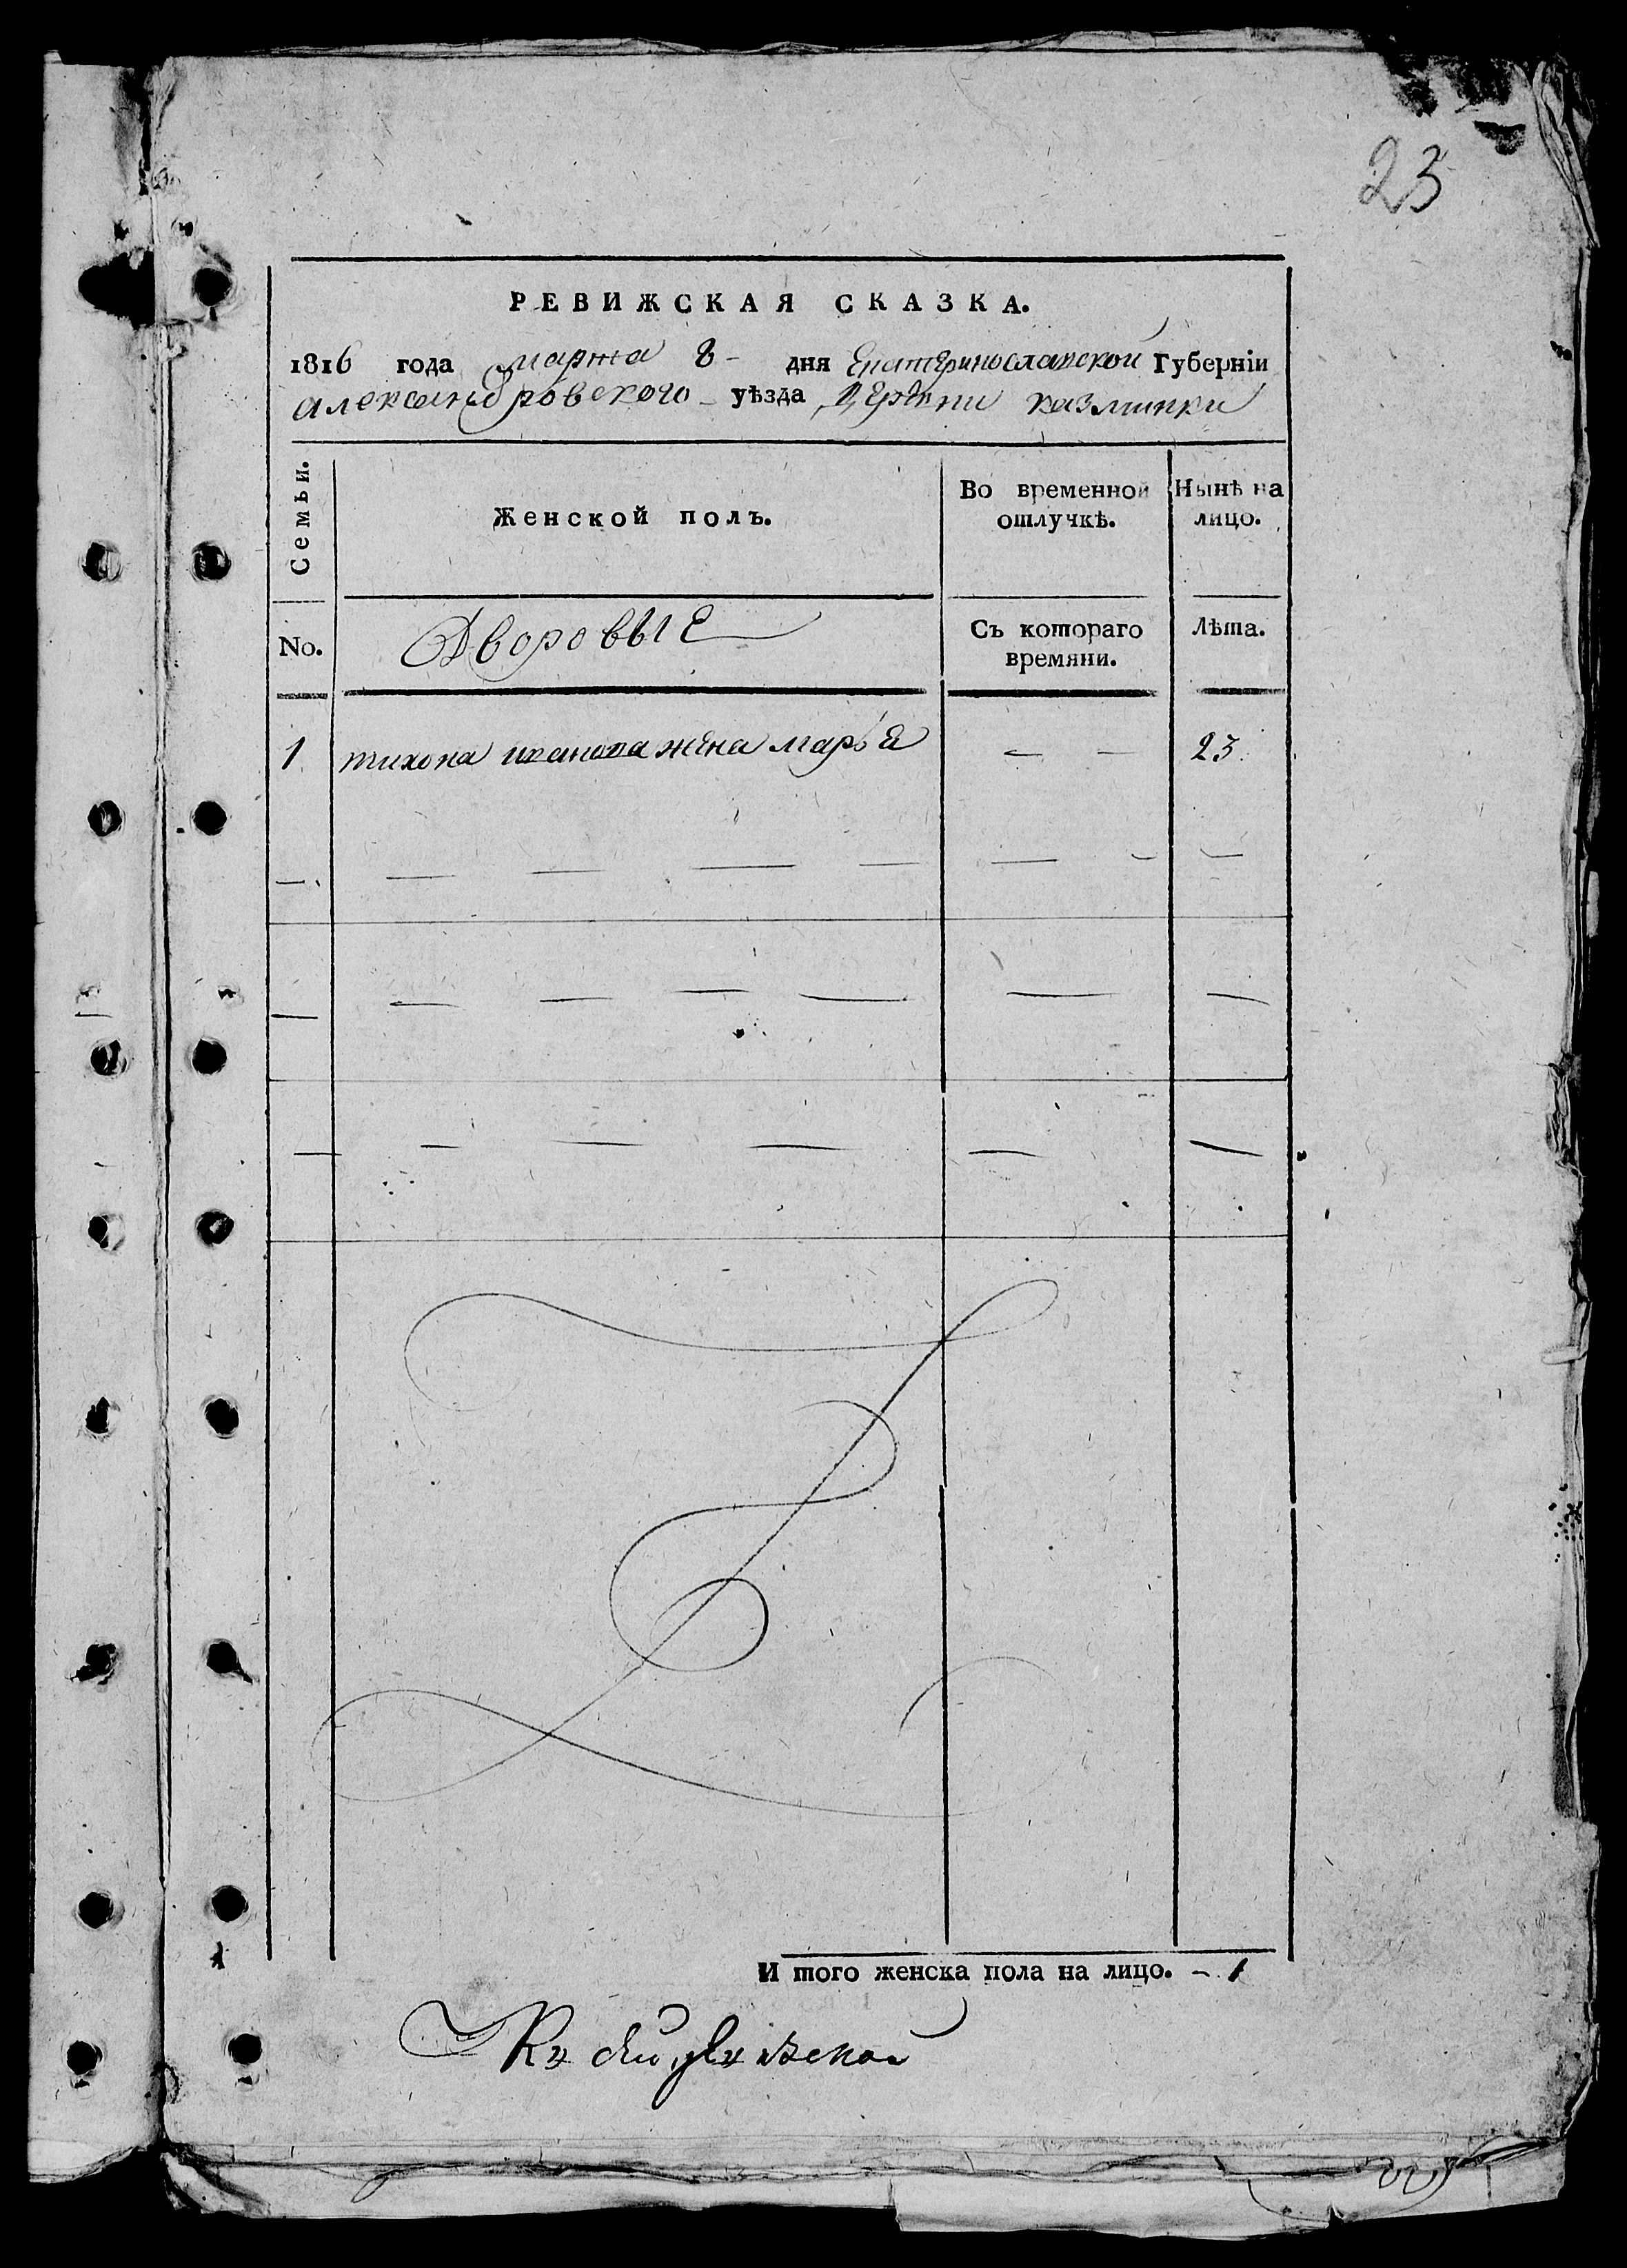 23
РЕВИЖСКАЯ СКАЗКА.
1816 года марта 8 - дня Екатеринославской Губерніи
александровского - уѣзда деревни казминки
Семьи.
Женской полъ.
Во временной отлучкѣ.
Нынѣ на лицо.
No.
Дворовые
Съ котораго времяни.
Лѣта.
1 тихона иванова жена марья — — 23.
И того женска пола на лицо. - 1
Къ сей